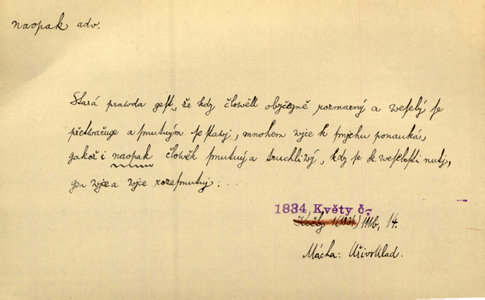 naopak adv.
Stará prawda gest, že kdy člowěk obyčegně rozmarný a weselý se
přetwařuge a smutným se stawj, mnohem wjce k smjchu ponauká,
gakož i naopak člowěk smutný a truchliwý, kdy se k weselosti nutj,
gen wjce a wjce rozesmutnj: . . .
1834 Květy č.
14.
Mácha: Křivoklad.